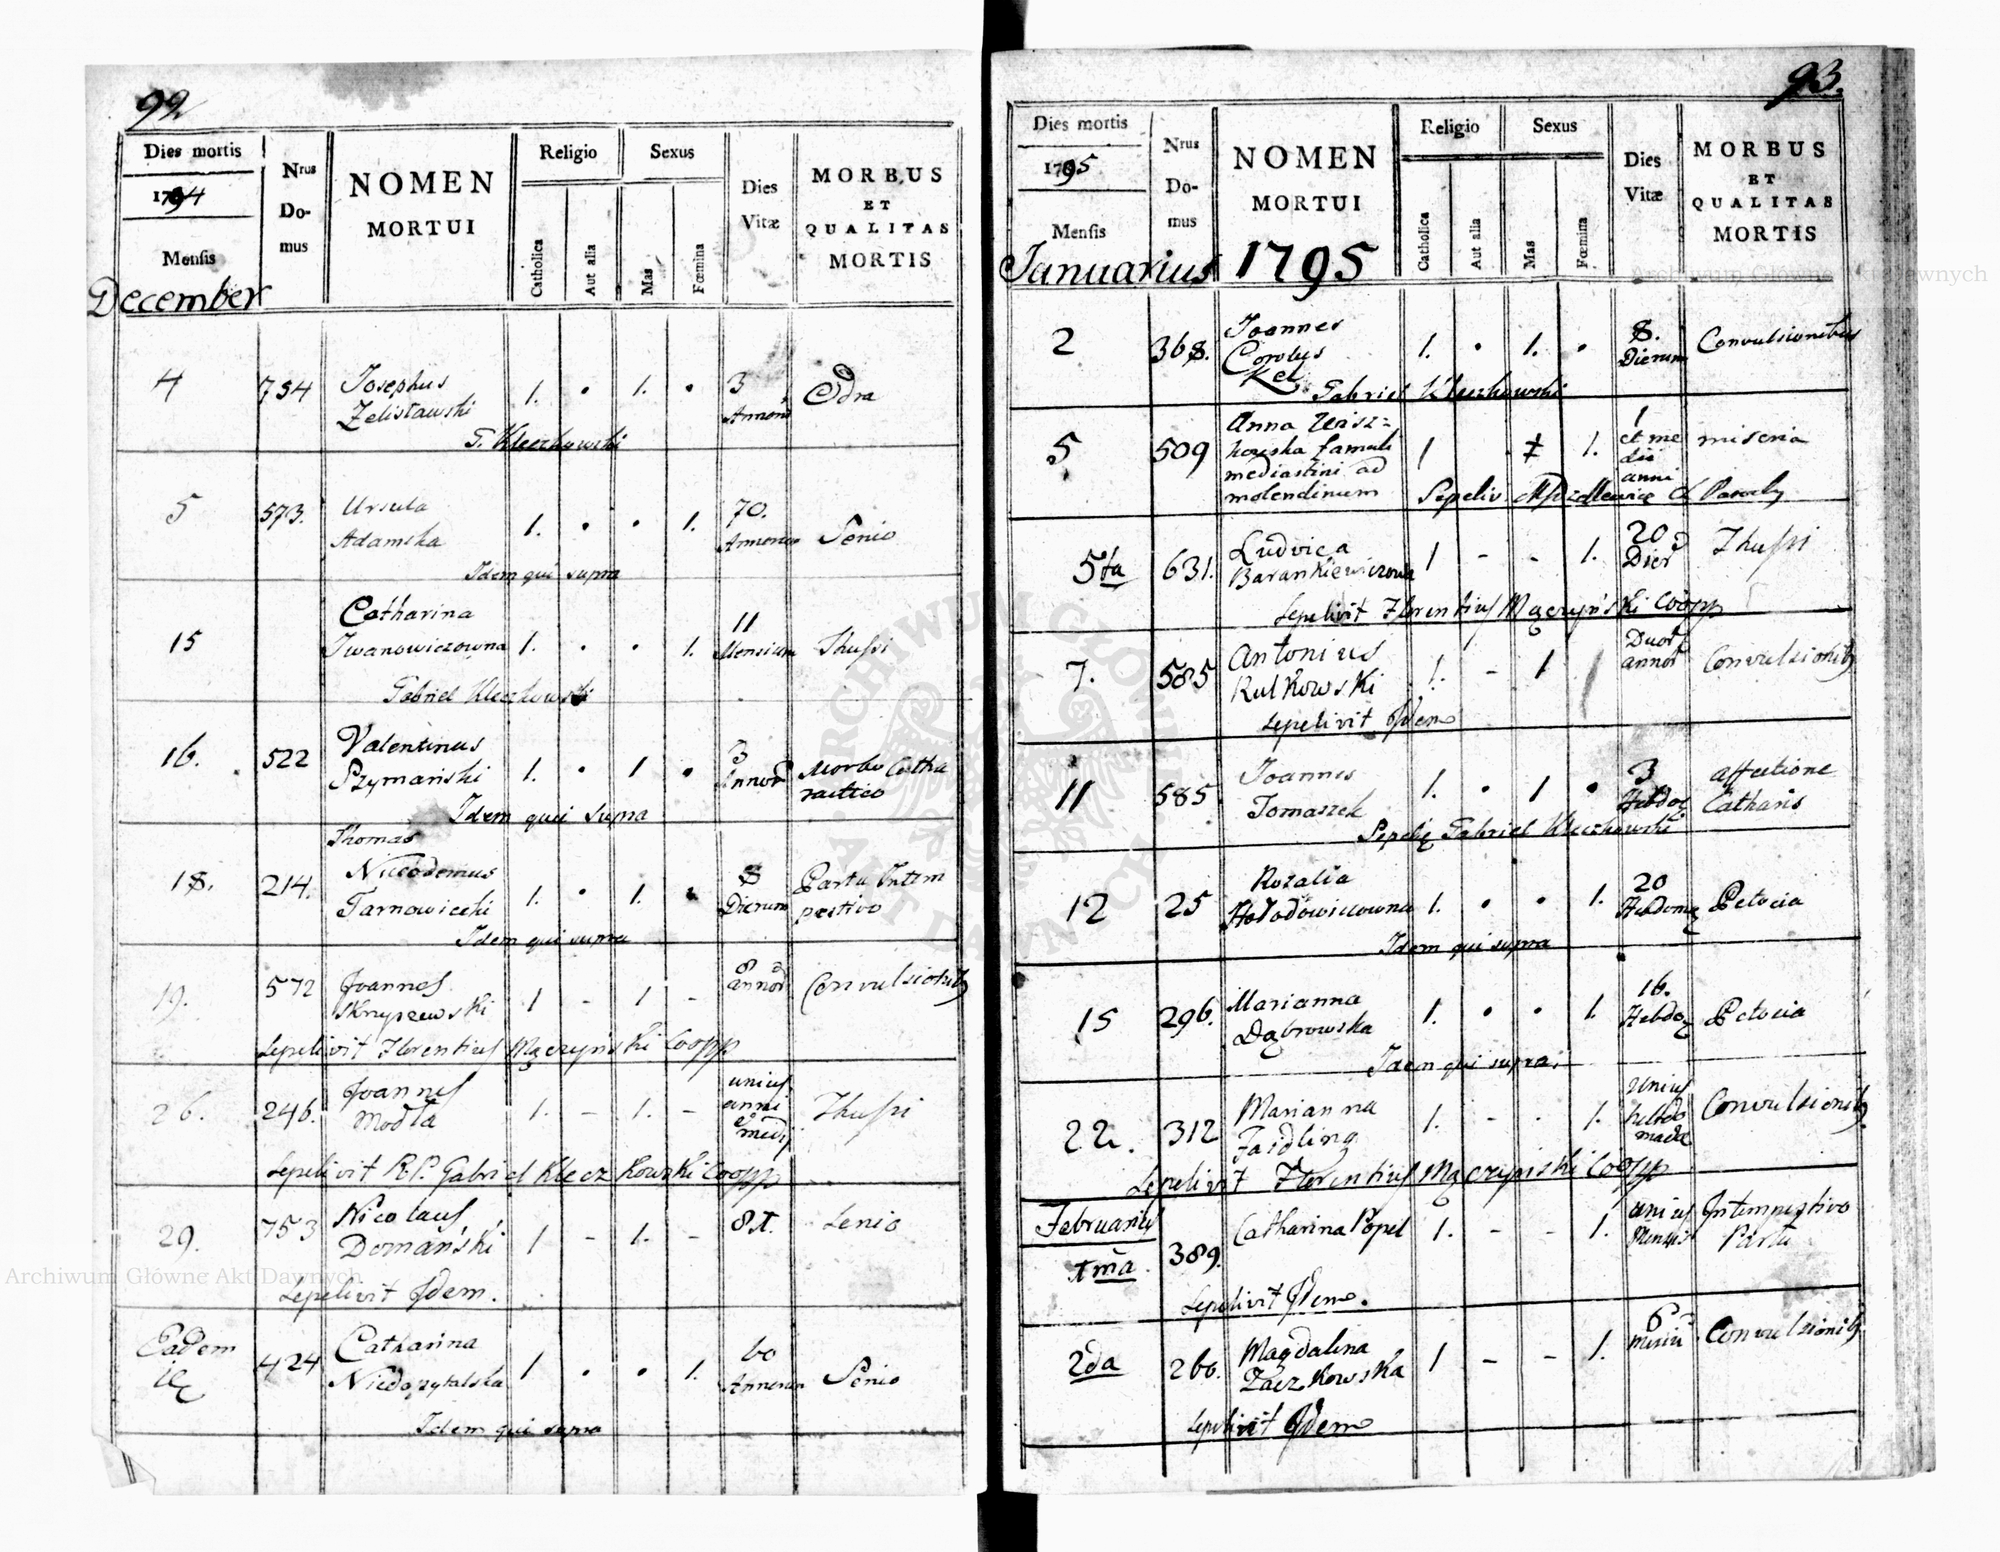 92
Dies mortis
1794
Mensis
December
Nrus Domus
NOMEN MORTUI
Religio
Catholica
Aut alia
Sexus
Mas
Fœmina
Dies Vitæ
MORBUS ET QUALITAS MORTIS
4 734 Josephus 1. • 1. • 3 Odra
Zelisławski Annorū
G. Kleczkowski
5 573. Ursula 1. • • 1. 70. Senio
Adamska Annorum
Idem qui supra
15 Catharina 11
Iwanowiczowna 1. • • 1. Mensium Thussi
Gabriel Kleczkowski
16. 522 Valentinus 1. • 1 • 3 Morbo Catha
Szymański Annorū
Idem qui supra
18. 214. Thomas
Nicodemus 1. • 1. • 8 Partu Intem
Tarnowiecki Dierum pestivo
Idem qui supra
19. 572 Joannes 1 - 1 - 8 annorū Convulsionib
Skrzyszewski
Sepelivit Florentius Mączyński Coopp
26. 246. Joannes 1. - 1. - unius Thussi
Modła anni
et medij
Sepelivit R.P. Gabriel Kleczkowski Coopp
29. 753 Nicolaus 1 - 1. - 81. Senio
Domański
Sepelivit Idem.
Eadem 424 Catharina 1 • • 1. 60 Senio
Niedopytalska Annorum
Idem qui supra
93.
Dies mortis
1795
Mensis
Januarius
Nrus Domus
NOMEN MORTUI
1795
Religio
Catholica
Aut alia
Sexus
Mas
Fœmina
Dies Vitæ
MORBUS ET QUALITAS MORTIS
2 368. Joannes 1. • 1. • 8. Convulsionibus
Carolus Dierum
Kel
Gabriel Kleczkowski
5 509 Anna 1 1. 1 miseria
famuli et me
mediastini ad dii
molendinum anni
5ta 631. Ludvica 1 - - 1. 20 Thussi
Barankiewiczowa Dier
Sepelivit Florentius Mączyński Coopp
7. 585 Antonius 1. - 1 Duor Convulsionib
Rutkowski annor
Sepelivit Idem
11 585 Joannes 1. • 1 • 3 affectione
Tomaszek Hebdo Catharis
Gabriel Kleczkowski
12 25 Rozalia 1. • • 1. 20 Petocia
Hołodowiczowna Hebdom
Idem qui supra
15 296. Marianna 1. • • 1. 16. Petocia
Dąbrowska Hebdo
Idem qui supra.
22. 312 Marianna 1. - - 1. unius Convulsionib
Faidling hebdo
mada
Sepelivit Florentius Mączyński Coopp
Februarius 389. Catharina Popiel 1. - - 1. unius Intempestivo
1ma Mensis Partu
Sepelivit Idem.
2da 260. Magdalena 1 - - 1. 6 Convulsionib
Zaczkowska
Sepelivit Idem
Archiwum Główne Akt Dawnych
Archiwum Główne Akt Dawnych
ARCHIWUM GŁÓWNE AKT DAWNYCH